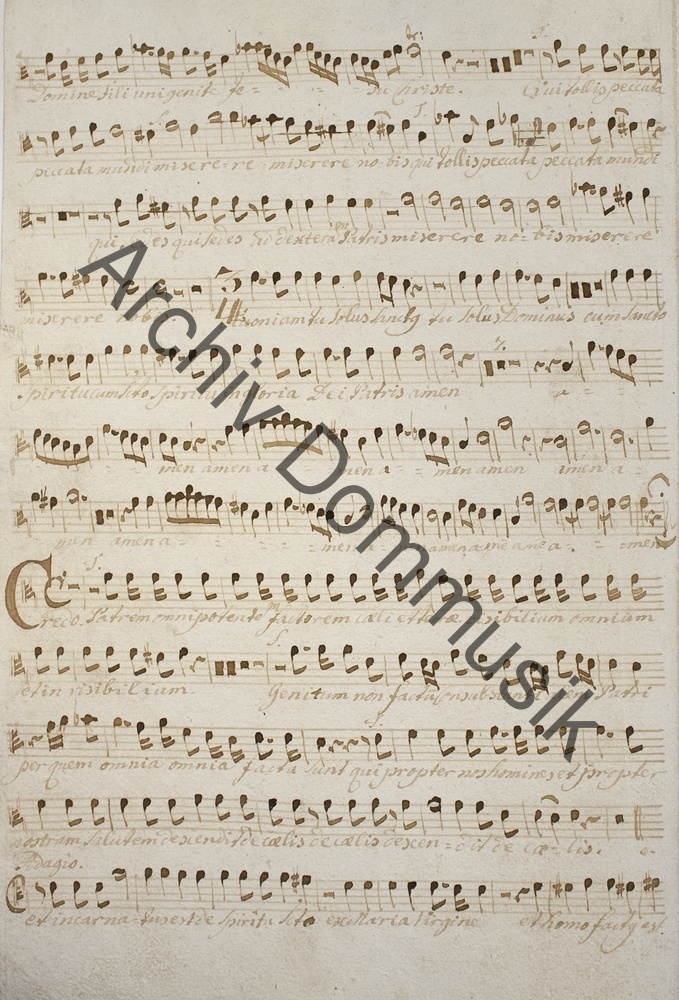 Domine fili unigenite Je = = = su Christe. Qui tollis peccata
peccata mundi misere=re = miserere no=bis qui tollis peccata peccata mundi
qui sedes qui sedes ad dexteram Patris miserere no=bis miserere
miserere
3/4 Quoniam tu solus sanctg tu solus Dominus cum sancto
spiritu cum scto spiritu in gloria Dei Patris amen a = =
men amen a = men a = men amen amen a =
men amen a = = = = men a = amen a men a = = men
Credo. Patrem omnipotentem factorem cœli et visibilium omnium
et in visibilium Genitum non factum Patri
per quem omnia omnia facta sunt qui propter nos homines et propter
nostram salutem descendit de cœlis de cœlis descen=dit de cœ=lis.
Adagio.
et incarna=tus est de Spiritu scto ex Maria Virgine et homo factg est
Archiv Dommusik